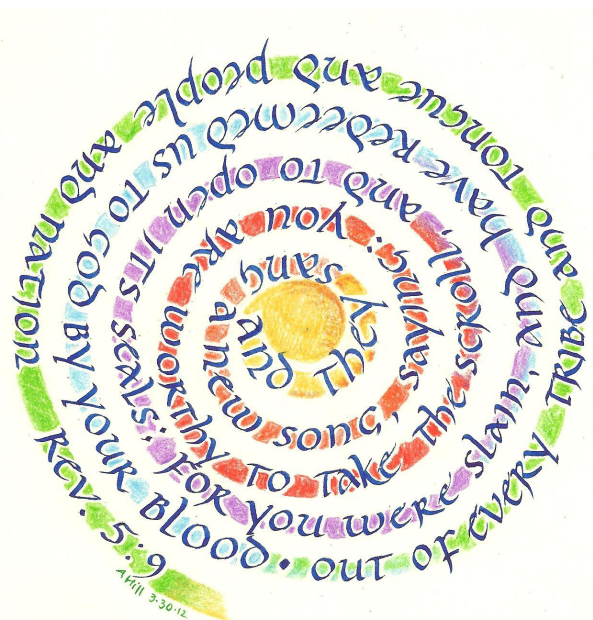 and They sang
a new song, saying:
you are worthy TO TAKE the scroll,
and TO open ITS seals: for you were slain,
and have redeemed us TO God By your Blood •
out of every TRIBE and Tongue and people and nation
Rev. 5:9
A Hill 3-30-12